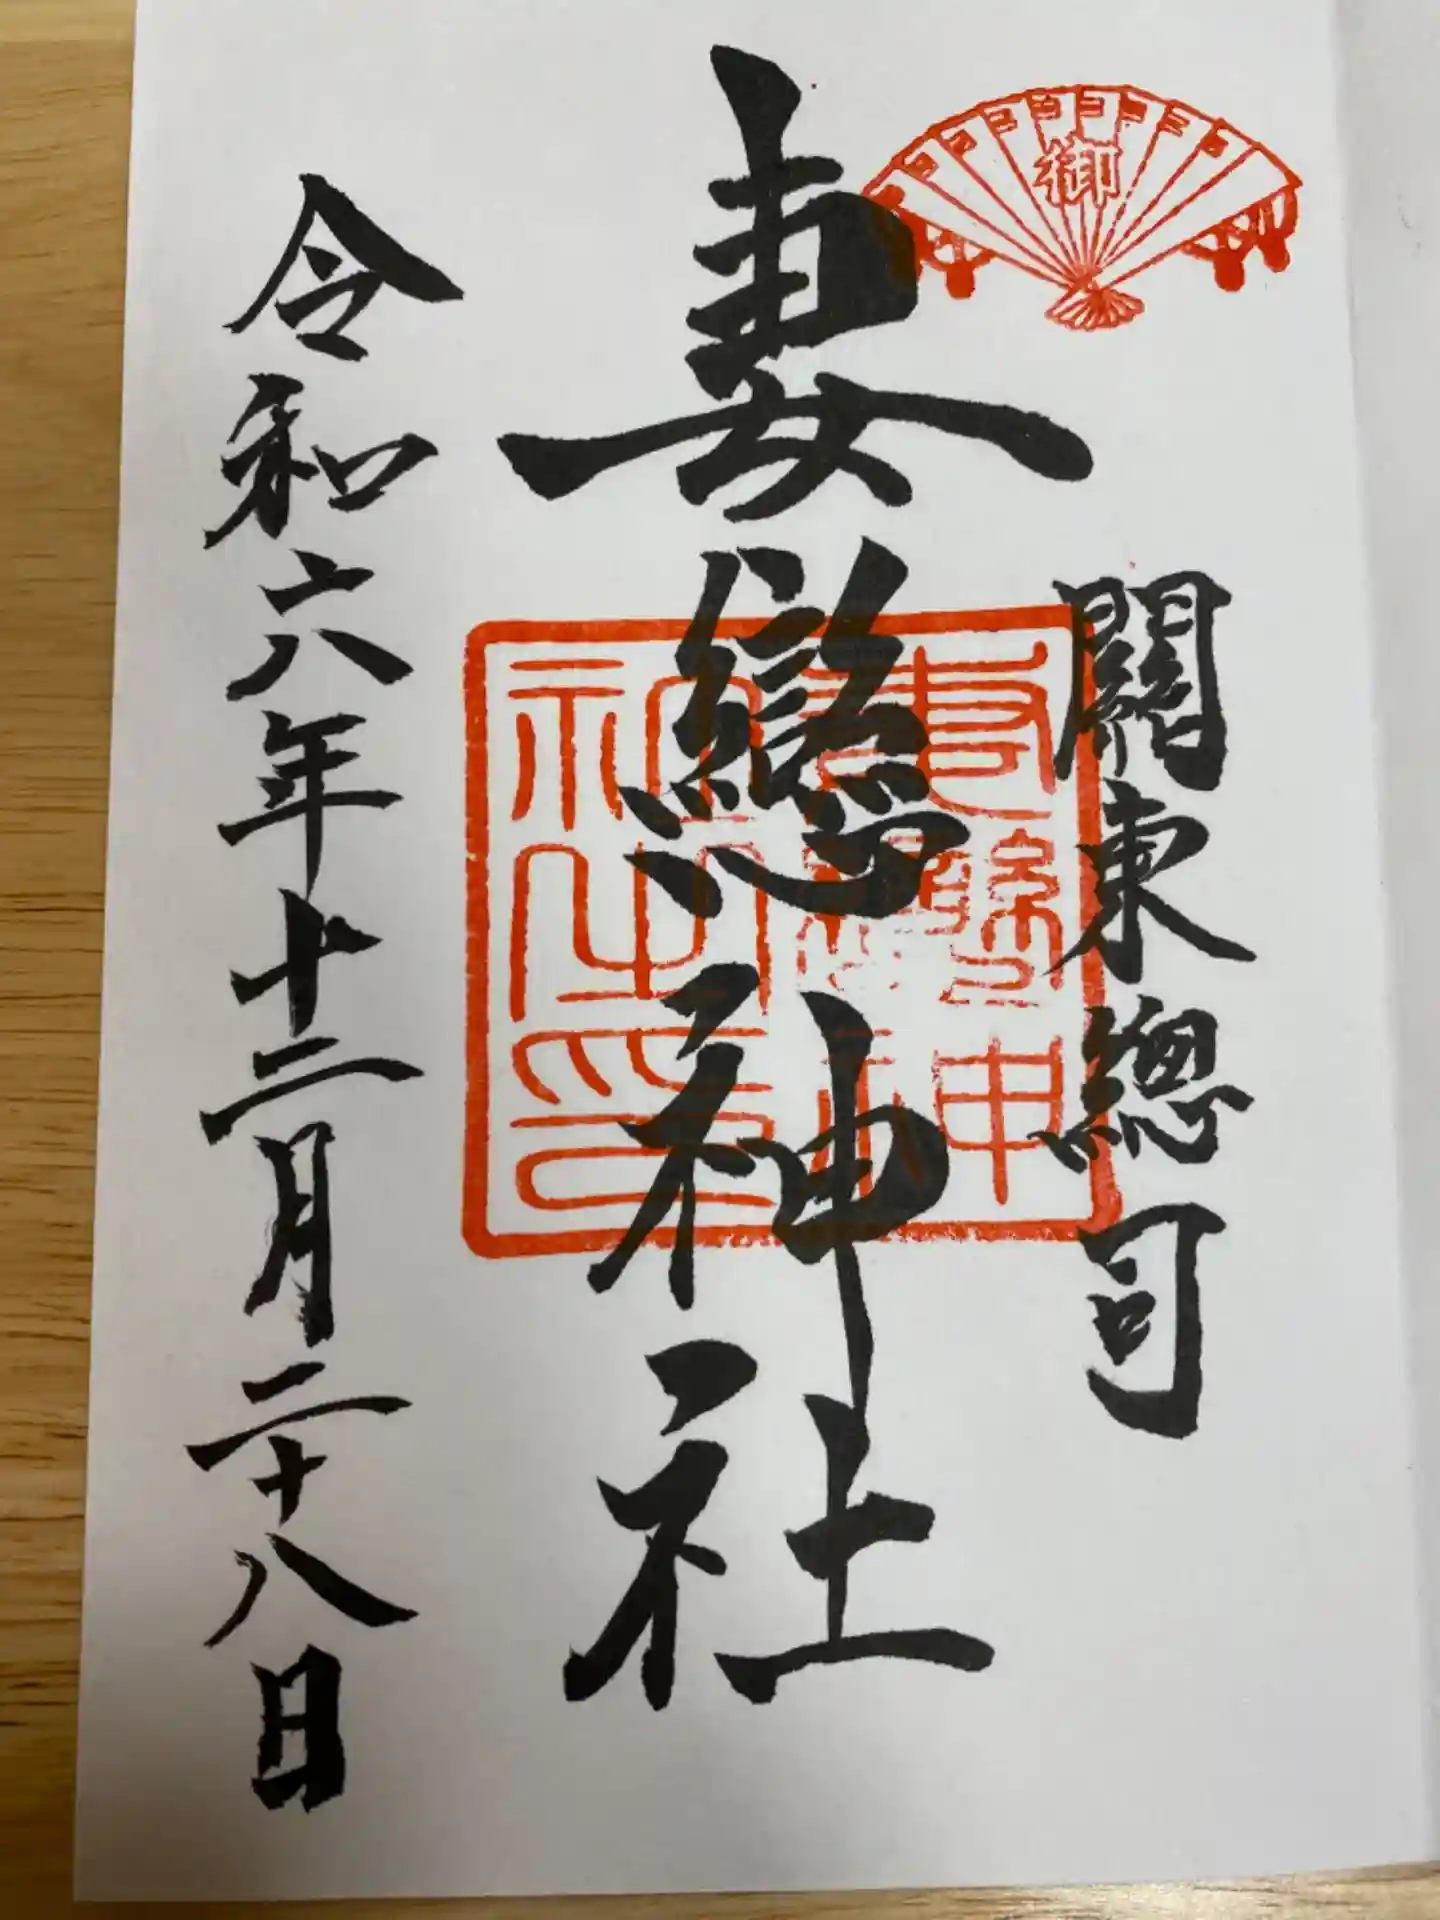 御
關東總司
妻戀神社
妻戀神
社之印
令和六年十二月二十八日